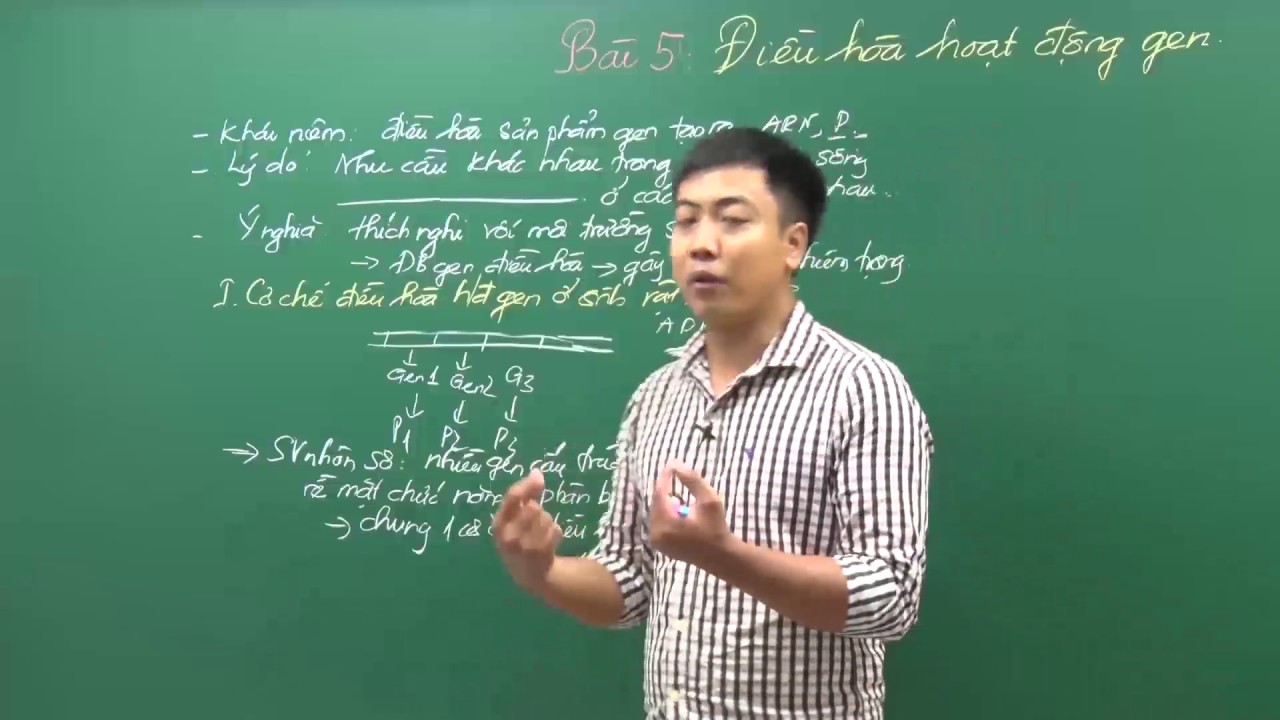 Bài 5: Điều hòa hoạt động gen.
- Khái niệm: điều hòa sản phẩm gen tạo ra ARN, P.
- Lý do: Nhu cầu khác nhau trong sống
ở các hau...
- Ý nghĩa thích nghi với môi trường s
→ ĐB gen điều hòa → gây nghiêm trọng
I. Cơ chế điều hòa hđ gen ở sinh
AD
Gen1 Gen2 G3
P1 P2 P3
→ SV nhân sơ: nhiều gen cấu trúc
về mặt chức năng phân b
→ chung 1